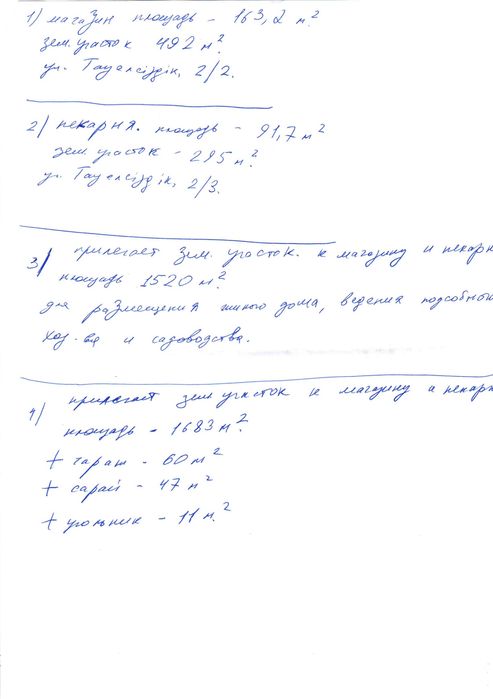 1) магазин площадь - 163,2 м²
зем. участок 492 м².
ул. Тәуелсіздік, 2/2.
2) пекарня. площадь - 91,7 м²
зем. участок - 295 м².
ул. Тәуелсіздік, 2/3.
3) прилегает зем. участок. к магазину и пекарн
площадь 1520 м².
для размещения жилого дома, ведения подсобног
хоз-ва и садоводства.
4) прилегает зем участок к магазину и пекарн
площадь - 1683 м².
+ гараж - 60 м²
+ сарай - 47 м²
+ угольник - 11 м.²